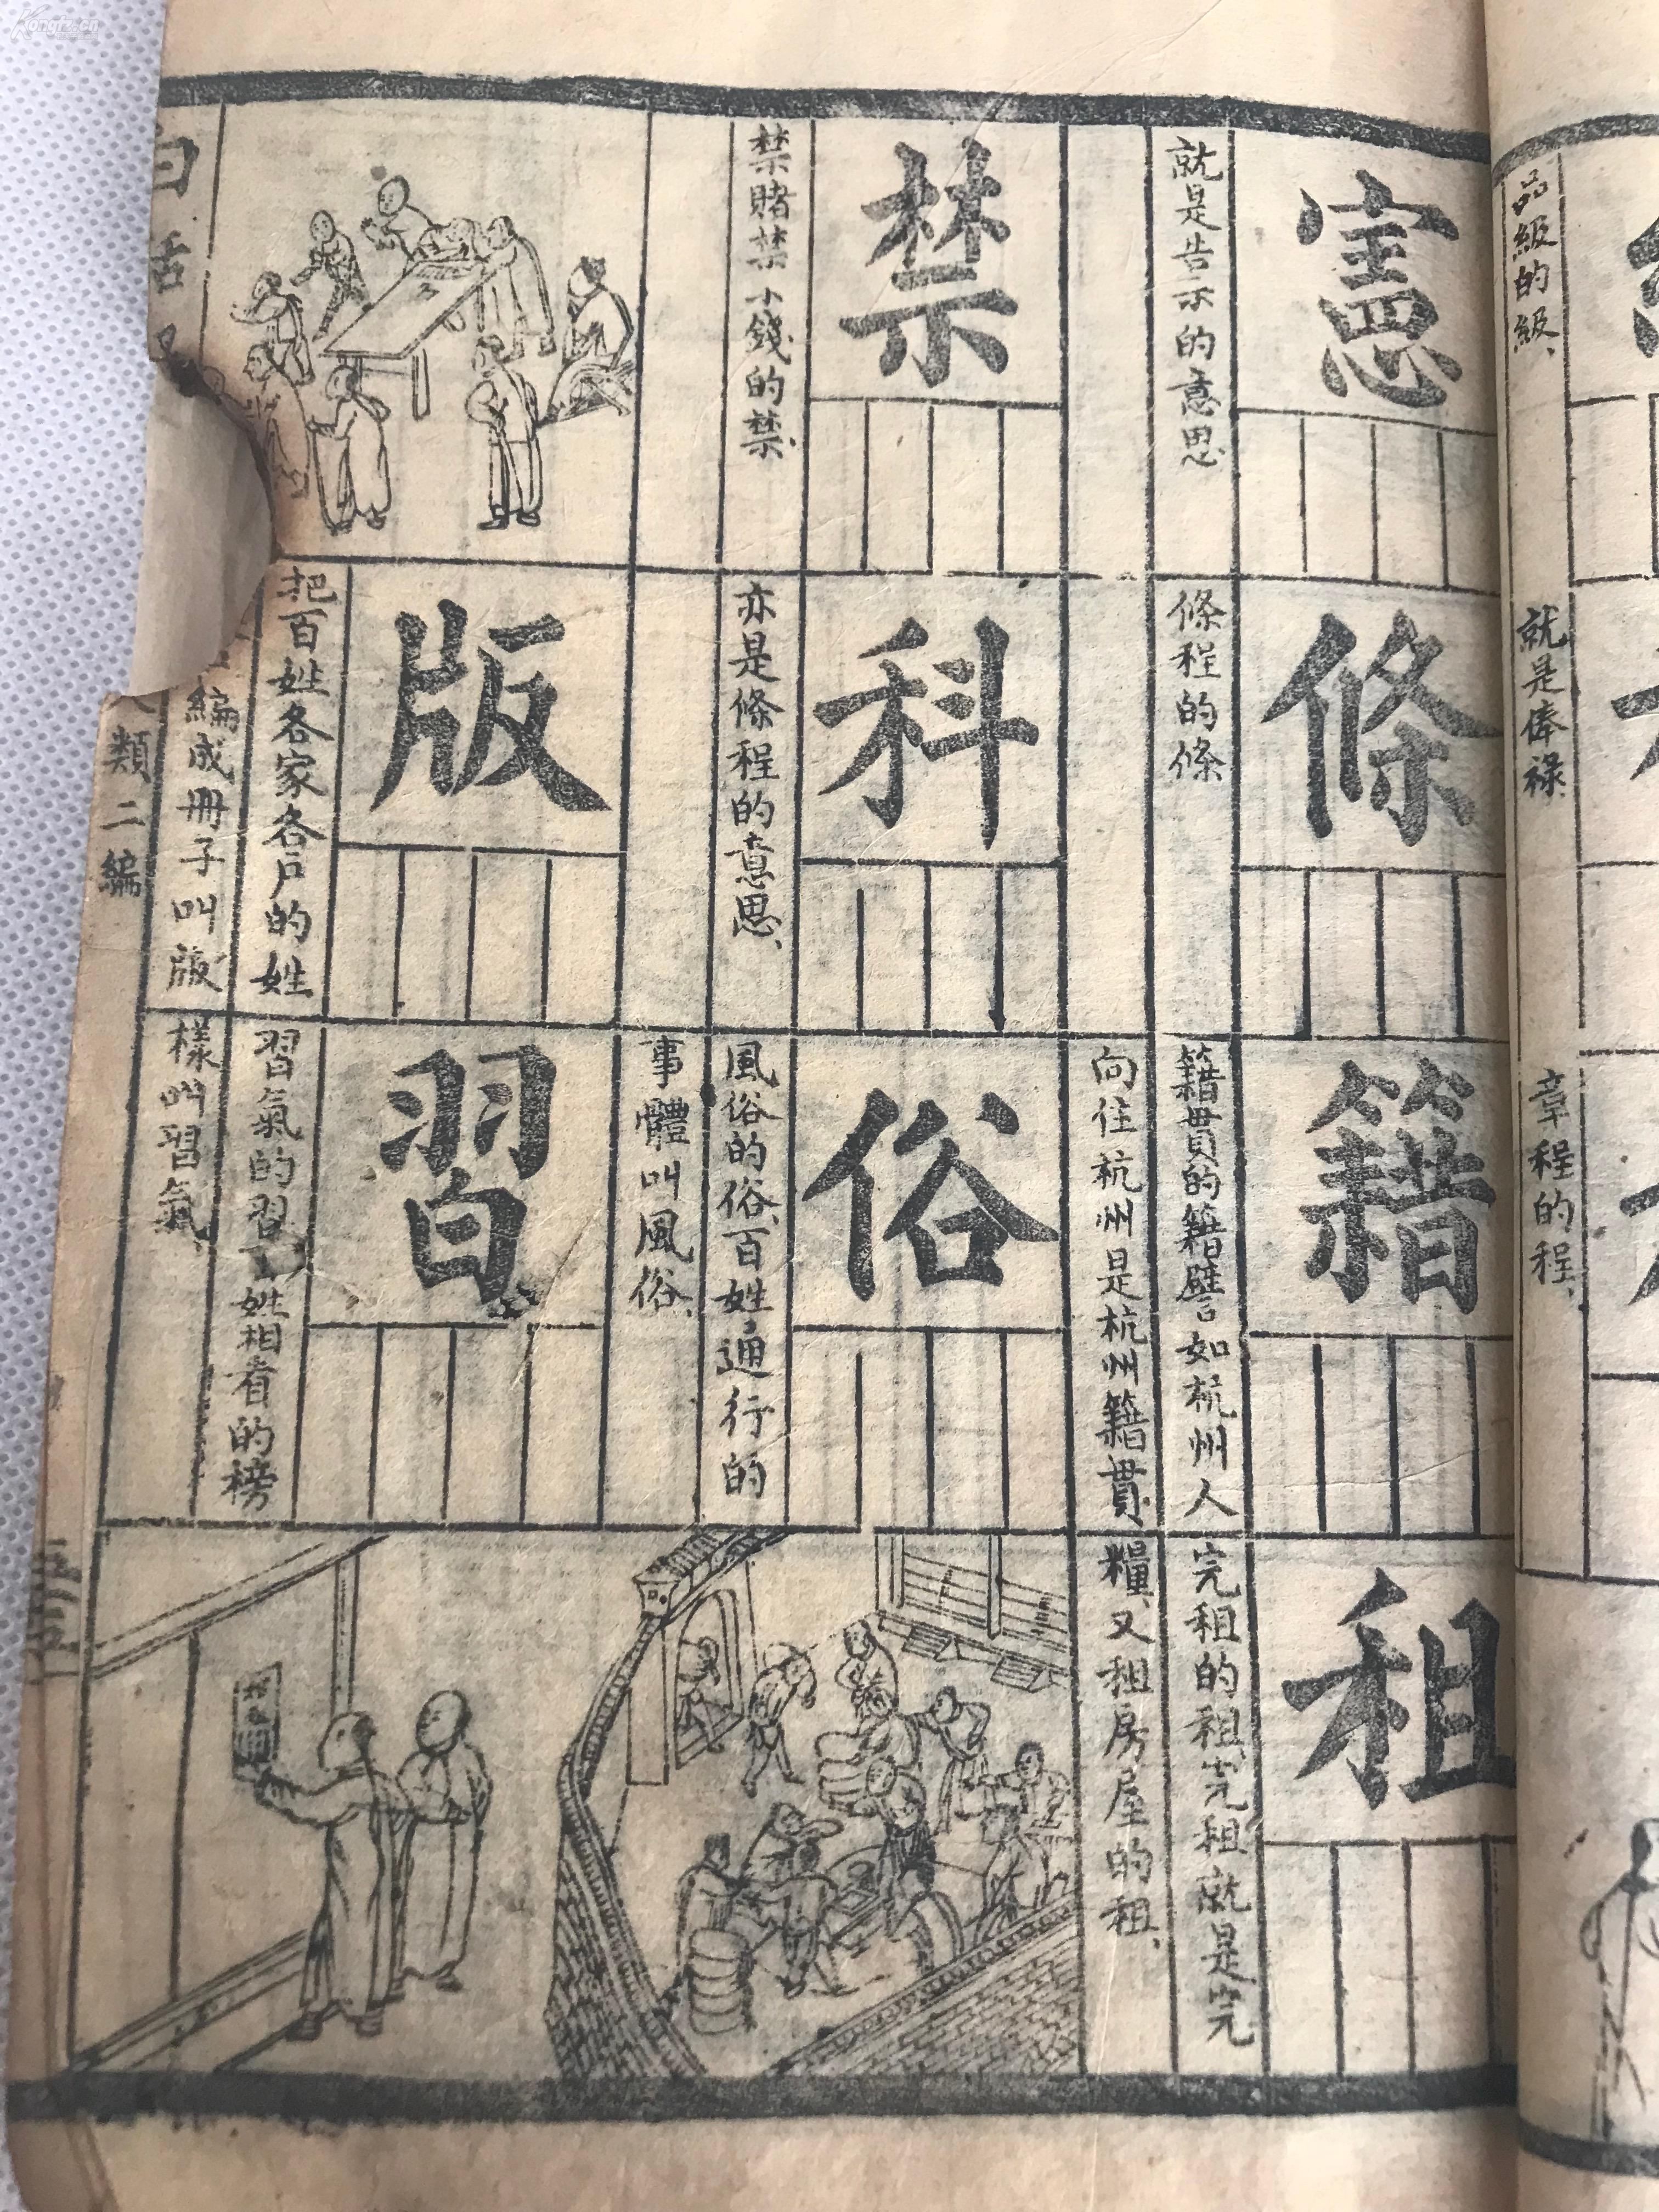 品級的級、
就是俸祿、
章程的程、
憲
就是告示的意思
禁
禁賭禁小錢的禁、
條
條程的條
科
亦是條程的意思、
版
把百姓各家各戶的姓
編成冊子叫版
籍
籍貫的籍譬如杭州人
向住杭州是杭州籍貫、
俗
風俗的俗、百姓通行的
事體叫風俗、
習
習氣的習
姓相看的榜
樣叫習氣、
租
完租的租、完租就是完
糧、又租房屋的租、
白話
類二編
Kongfz.cn